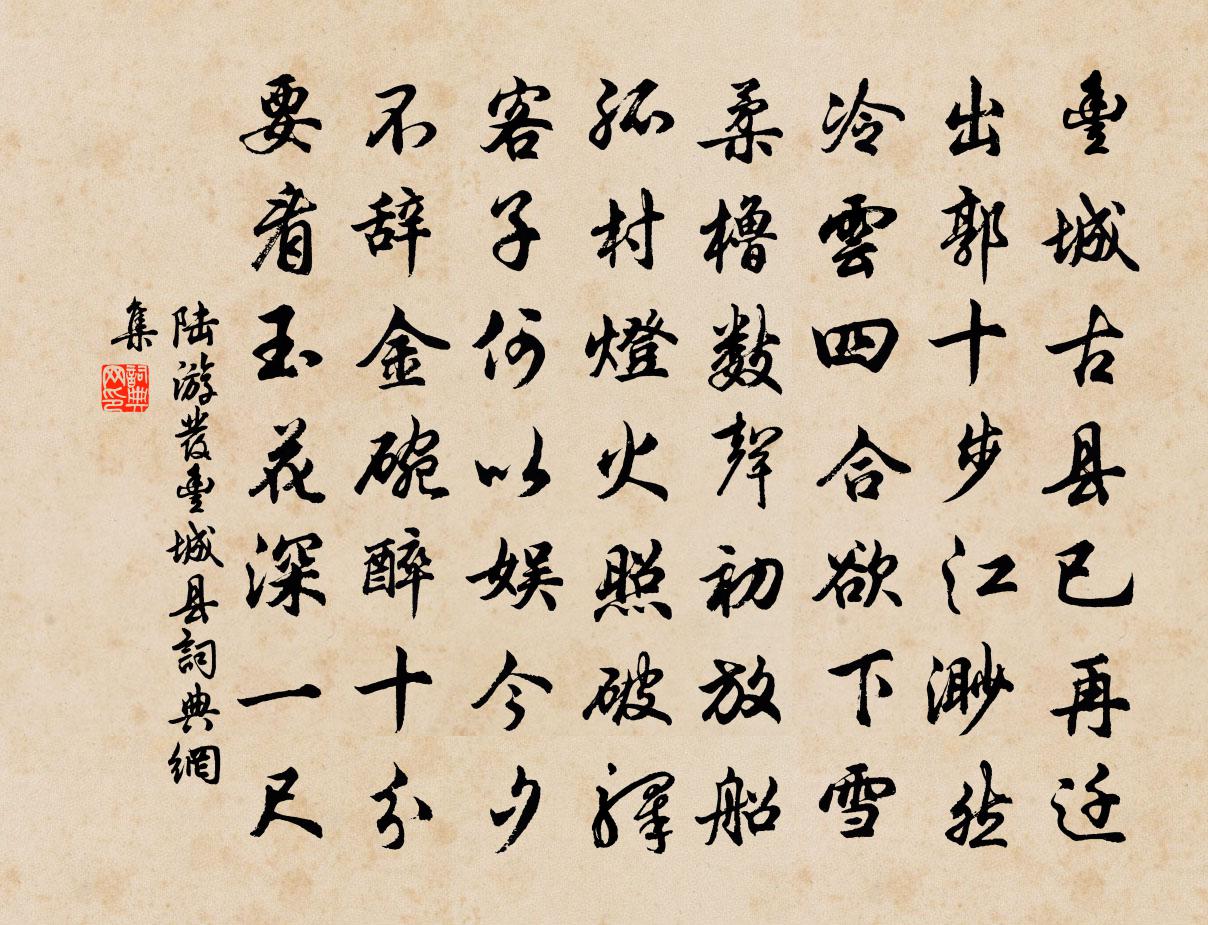 豐城古县已再迁
出郭十步江渺然
冷雲四合欲下雪
柔櫓數聲初放船
孤村燈火照破驛
客子何以娱今夕
不辞金碗醉十分
要看玉花深一尺
陆游發豐城县詞典網
集
詞典
网印